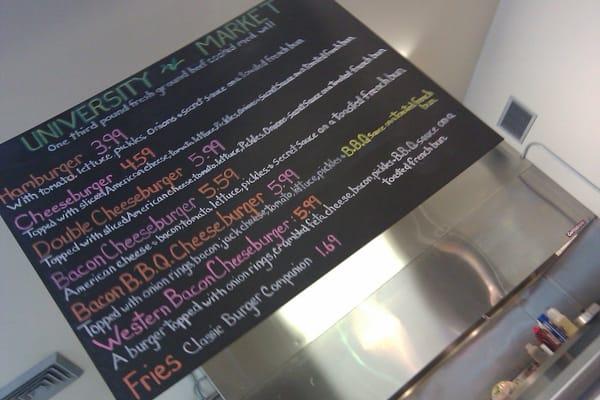 UNIVERSITY MARKET
One third pound fresh ground beef cooked med. well
Hamburger 3.99
With tomato, lettuce, pickles, Onions + secret Sauce on a Toasted french bun
Cheeseburger 4.59
Topped with sliced American cheese, tomato, lettuce, Pickles, Onions Secret Sauce on a Toasted french bun
Double Cheeseburger 5.99
Topped with sliced American cheese, tomato, lettuce, Pickles, Onions Secret Sauce on a Toasted french bun
Bacon Cheeseburger 5.59
American cheese + bacon, tomato, lettuce, pickles + Secret Sauce on a Toasted french bun
Bacon B.B.Q. Cheese burger 5.99
Topped with onion rings, bacon, jack cheese, tomato, lettuce, pickles + B.B.Q. sauce on a Toasted french bun
Western Bacon Cheeseburger 5.99
A burger Topped with onion rings, crumbled feta cheese, bacon, pickles B.B.Q. sauce on a toasted french bun.
Fries Classic Burger Companion 1.69